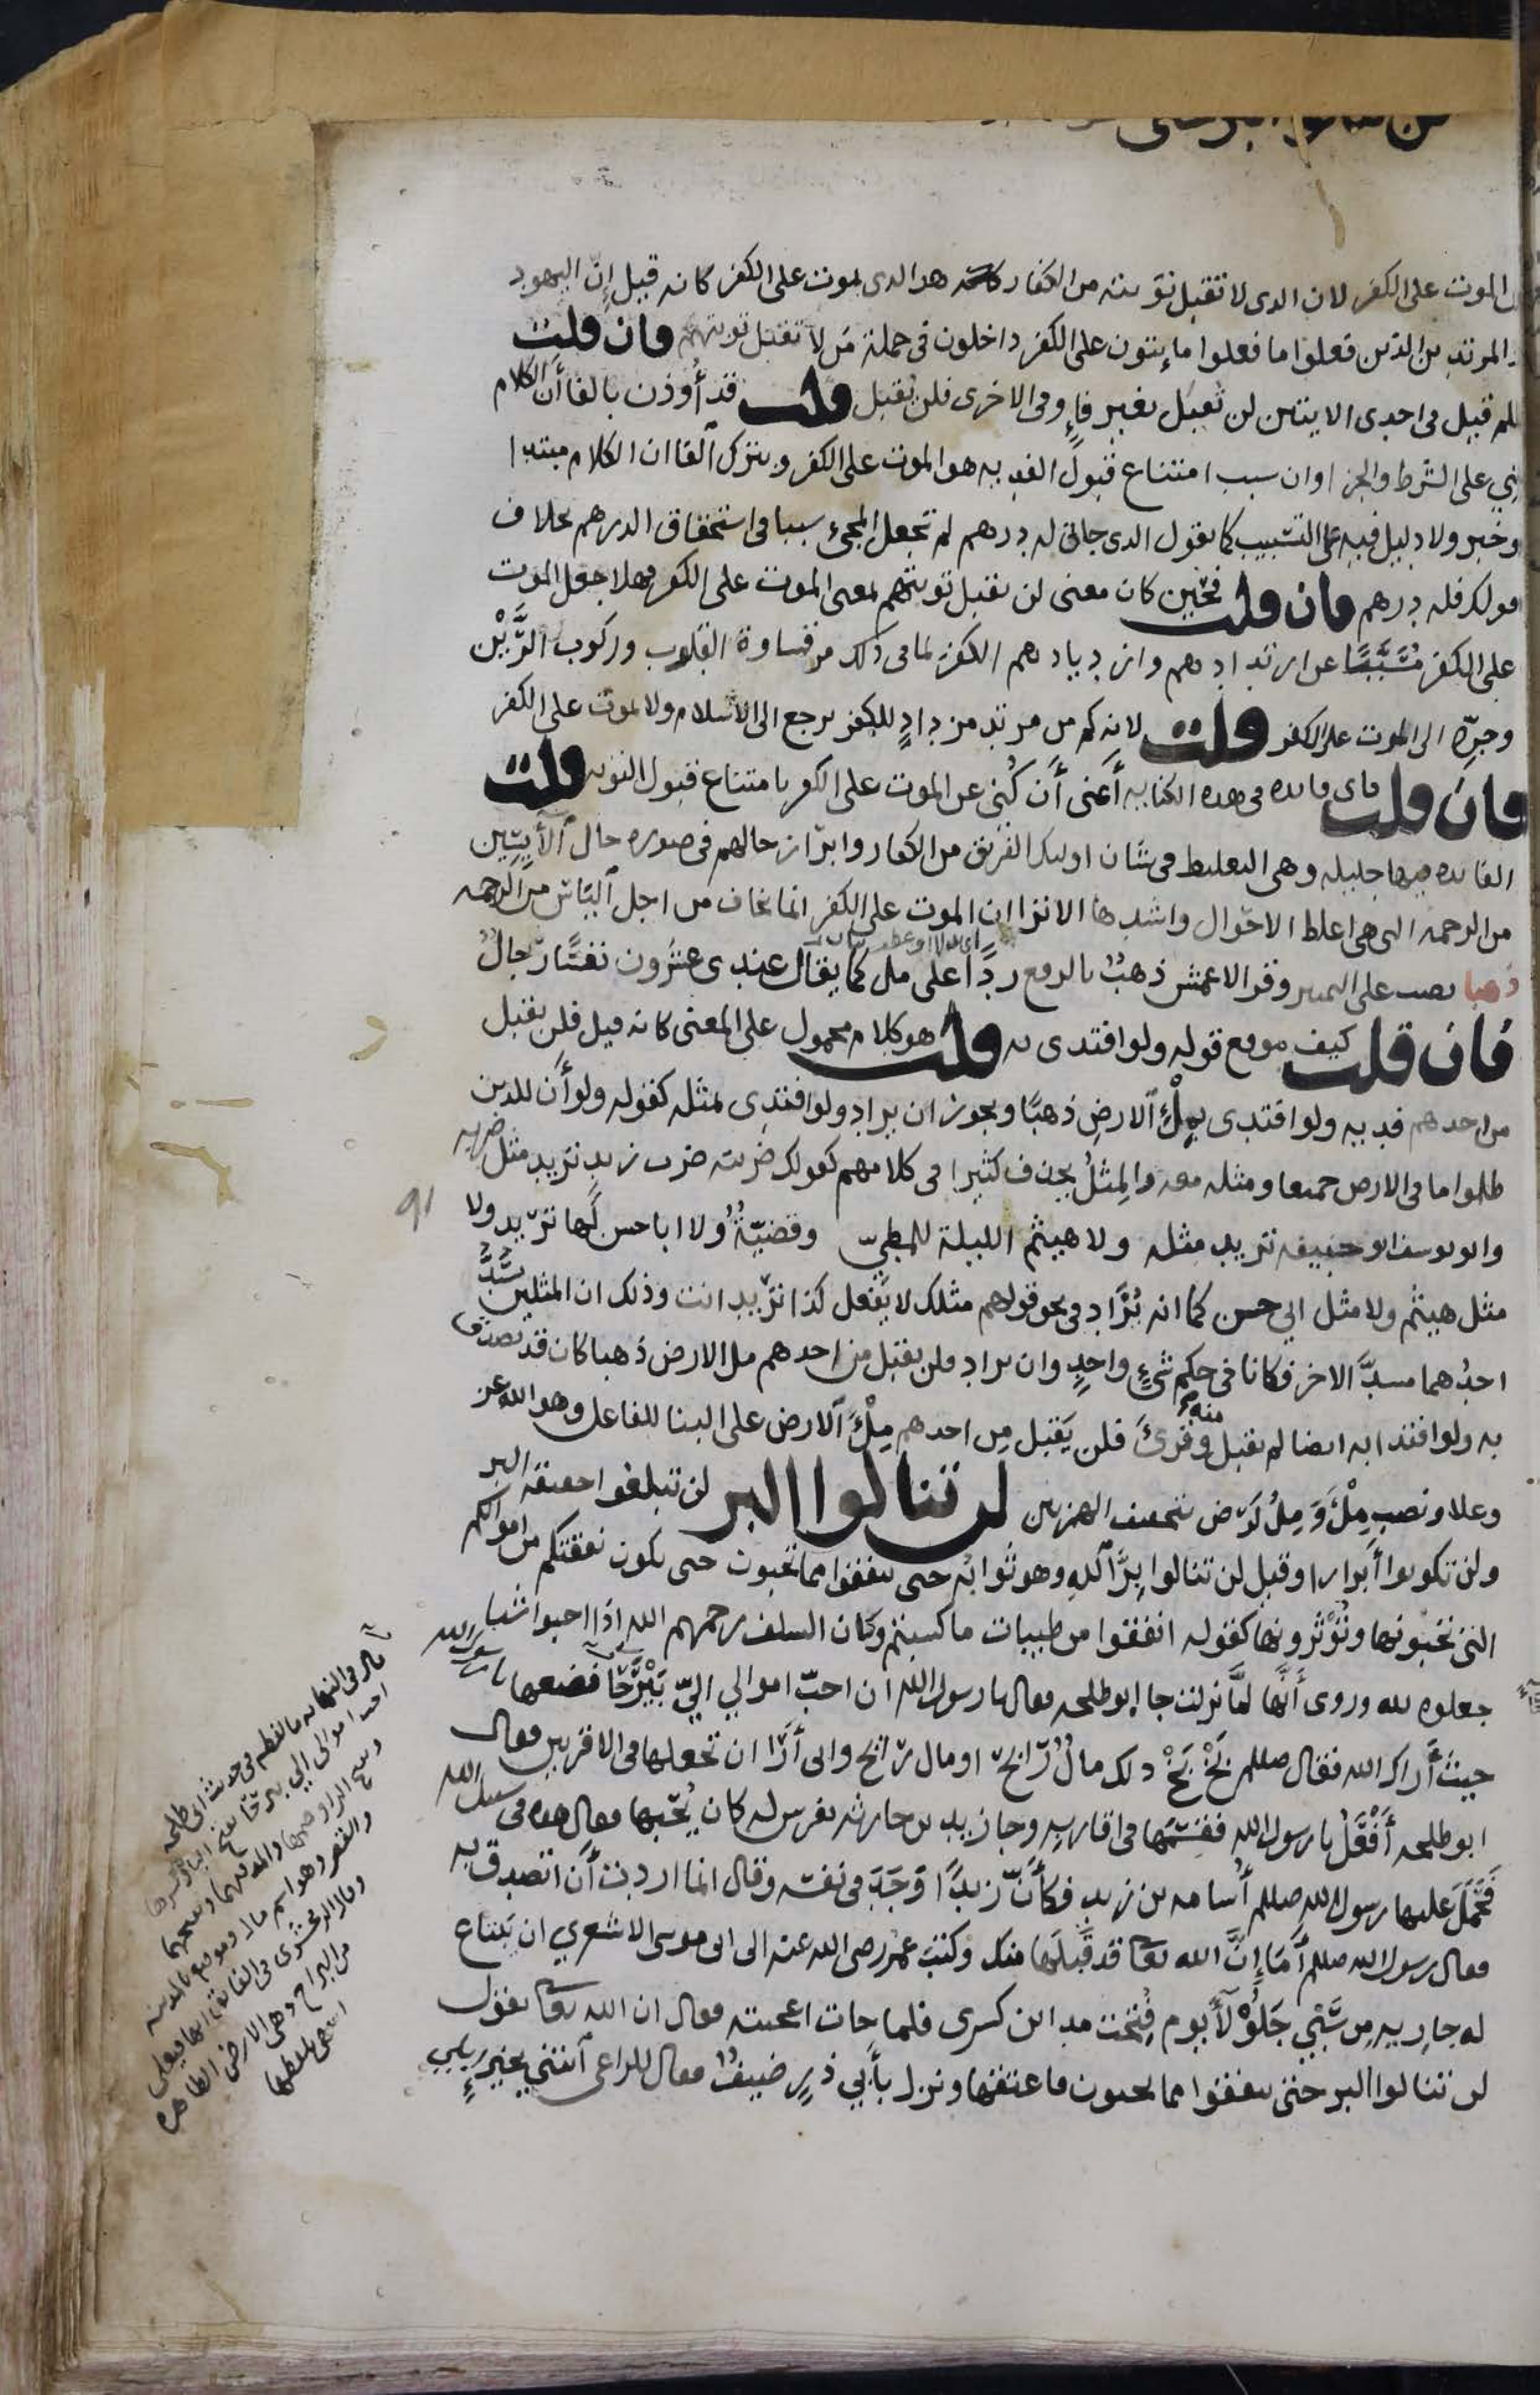 الموت على الكفر لان الدى لا تقبل توبته من الكفار هو الدى يموت على الكفر كانه قيل إنّ اليهود
المرتدين الذين فعلوا ما فعلوا مايتون على الكفر داخلون فى جملة مَن لا تقبل توبتهم فان قلت
فلم قيل فى احدى الايتين لن تقبل بغير فاءٍ وفى الاخرى فلن يُقبل قلت قد أُوذن بالفا أن الكلام
بني على الشرط والجزا وان سبب امتناع قبول الفديه هو الموت على الكفر وبترك الفا ان الكلام مبتدا
وخبر ولا دليل فيه على التسبيب كما يقول الذى جانى له درهم لم تجعل المجئ سببا فى استحقاق الدرهم بخلاف
قولك فله درهم فان قلت فحين كان معنى لن تقبل توبتهم بمعنى الموت على الكفر فهلا جعل الموت
على الكفر مُسَبَّبًا عن ارتدادهم وازديادهم الكفر لما فى ذلك من قساوة القلوب وركوب الرَّيْن
وجرّه الى الموت على الكفر قلت لانه كم من مرتد مزدادٍ للكفر يرجع الى الاسلام ولا يموت على الكفر
فان قلت فاى فايده فى هذه الكنايه أعنى أن كُنِى عن الموت على الكفر بامتناع قبول التوبه قلت
الفايده فيها جليله وهى التغليط فى شان اوليك الفريق من الكفار وابراز حالهم فى صوره حال الآيسين
من الرحمه التى هى اغلظ الاحوال واشدها الا ترا ان الموت على الكفر انما يخاف من اجل اليَاس من الرحمه
ذهبا نصب على التمييز وقرا الاعمش ذهبٌ بالرفع ردًّا على مل كما يقال عندى عشرون نفسًا رجالٌ
فان قلت كيف موقع قوله ولو افتدى به قلت هو كلام محمول على المعنى كانه قيل فلن يقبل
من احدهم فديه ولو افتدى بمِلْءِ الارضِ ذهبًا ويجوز ان يراد ولو افتدى بمثله كقوله ولو أن للدين
ظلموا ما فى الارض جميعا ومثله معه والمِثلُ يحذف كثيرا فى كلامهم كقولك ضربته ضرب زيد تريد مثل ضربه
وابو يوسف ابو حنيفه تريد مثله ولا هيثم الليلة للمطيّ وقضيّةٌ ولا ابا حسن لها تريد ولا
91
مثل هيثم ولا مثل ابي حسن كما انه يُزاد فى نحو قولهم مثلك لا يفعل كذا تريد انت وذلك ان المثلين يسُدُّ
احدُهما مسدَّ الاخر فكانا فى حكم شيءٍ واحدٍ وان يراد فلن يقبل من احدهم مل الارض ذهبا كان قد تصدق
به ولو افتدا به ايضا لم يقبل منه وقرئ فلن يَقبل مِن احدهم مِلْءَ الارض على البنا للفاعل وهو الله عز
وعلا ونصبِ مِلْءَ وَمِلُ لَرْض بتخفيف الهمزتين لن تنالوا البر لن تبلغوا حقيقة البر
ولن تكونوا أبرارا وقيل لن تنالوا برَّ اللهِ وهو ثوابُه حتى تنفقوا مما تحبون حتى تكون نفقتكم من اموالكم
التى تحبونها وتُؤْثرونها كقوله انفقوا من طيبات ما كسبتم وكان السلف رحمهم الله اذا احبوا شيا
جعلوه لله وروى أنّها لمّا نزلت جا ابو طلحه فقال يا رسول الله ان احبّ اموالي اليّ بَيْرَحَا فضعها يا رسول الله
حيث أَراك الله فقال صللم بَخْ بَخْ ذلك مالٌ رَابح او مال رائح وانى أرَا ان تجعلها فى الاقربين فقال
ابو طلحه أَفْعَلُ يا رسول الله فقسَّمها فى اقاربه وجا زيد بن حارثه بفرس له كان يُحبّها فقال هذه فى سبيل الله
فحَمَلَ عليها رسول الله صللم أُسامه بن زيدٍ فكأنّ زيدًا وَجَدَ فى نفسه وقال انما اردت أن اتصدق به
فقال رسول الله صللم أَمَا إنَّ الله تعا قد قَبِلَها منك وكتب عمر رضى الله عنه الى ابى موسى الاشعري ان يَبتاع
له جاريه مِن سَبْي جَلُوْلَاء يوم فُتحت مداين كسرى فلما جات اعجبته فقال ان الله تعا يقول
لن تنالوا البر حتى تنفقوا مما تحبون فاعتقها ونزل بأبي ذرٍ ضيفٌ فقال للراعى آئتنى بخير إبلي